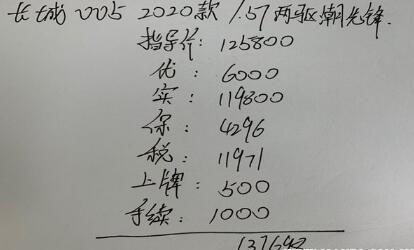 长城VV5 2020款 1.5T两驱潮先锋.
指导价: 125800
优: 6000
实: 119800
保: 4296
税: 11971
上牌: 500
手续: 1000